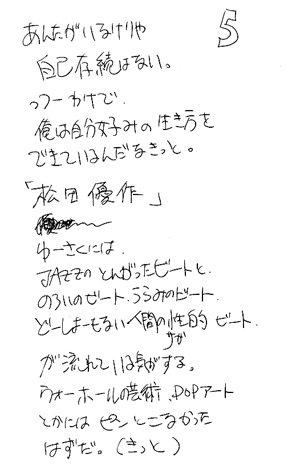 5
あんたがいるけりゃ
自己存続はない。
っつーわけで、
俺は自分好みの生き方を
できているんだなきっと。
「松田優作」
ゆーさくには、
JAZZのとんがったビートと、
のろいのビート、うらみのビート、
どーしよーもない人間の性的ビート、
サガ
が流れている気がする。
ウォーホールの芸術、POPアート
とかにはピンとこなかった
はずだ。(きっと)